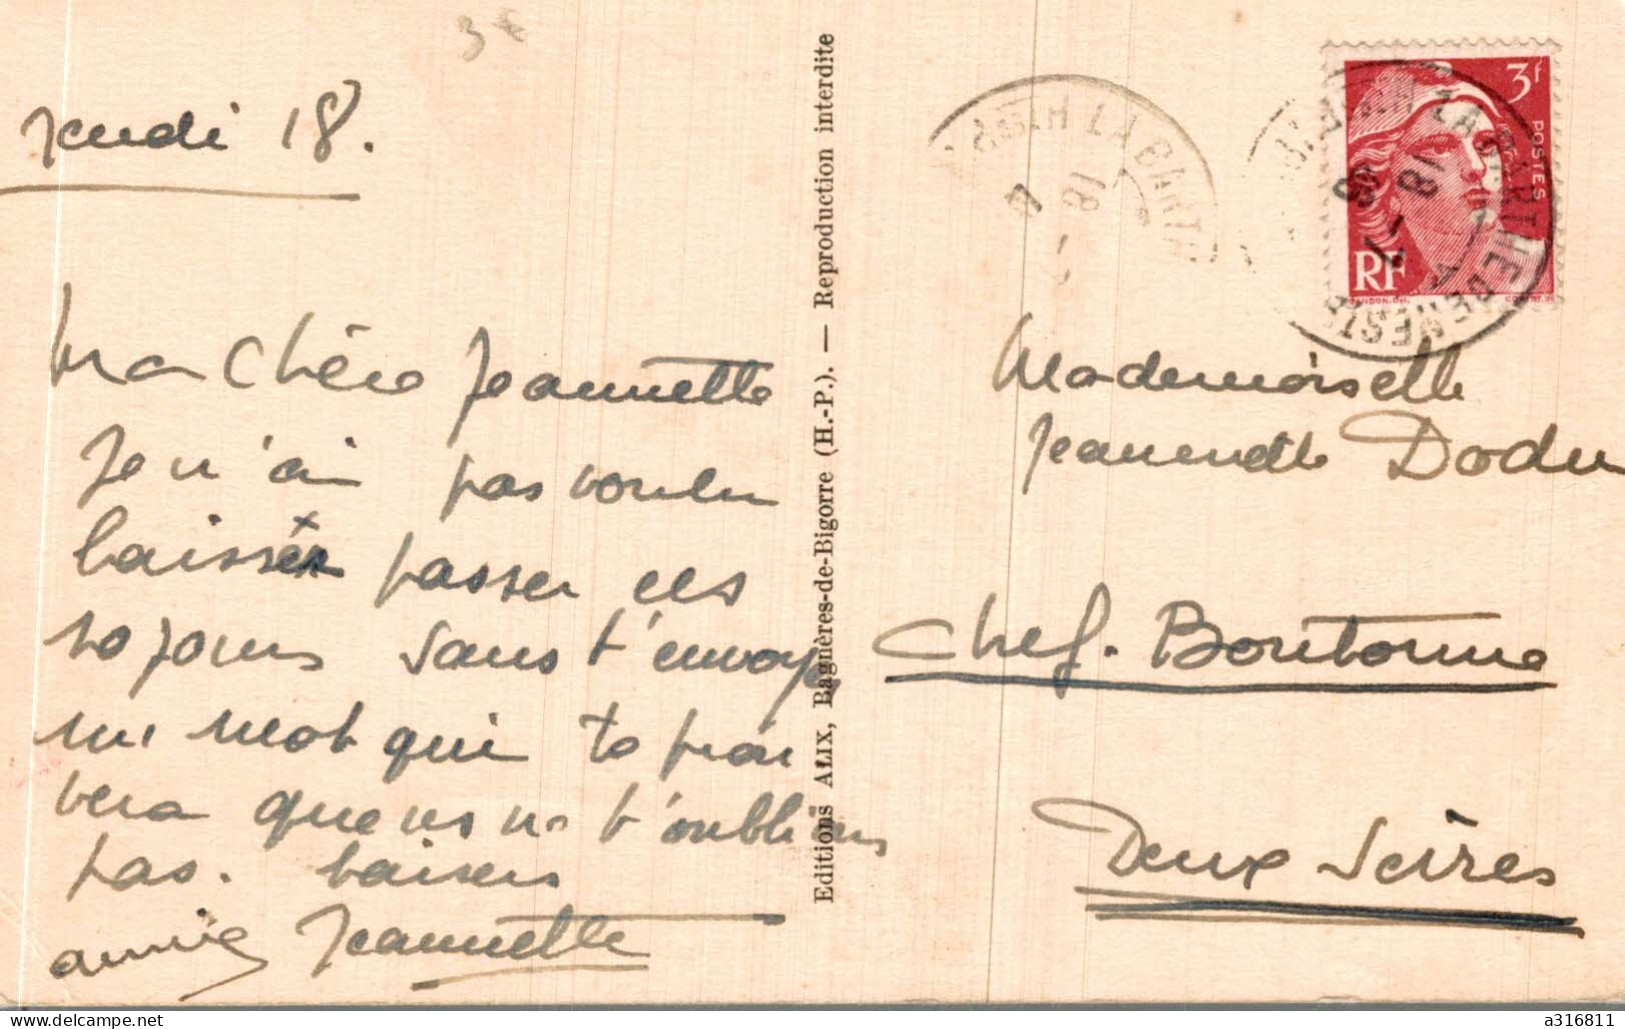 3 €
Jeudi 18.
Ma Chère Jeannette
Je n'ai pas voulu
laisser passer ces
jours sans t'envoyer
un mot qui te prou
vera que ns ne t'oublions
pas. baisers
Annie Jeannette
Editions ALIX, Bagnères-de-Bigorre (H.-P.). — Reproduction interdite
LA BARTHE
18 - 7
LA BARTHE DE NESTE
18 - 7
3f
POSTES
RF
Mademoiselle
Jeannette Dodu
Chef-Boutonne
Deux Sèvres
delcampe.net
a316811